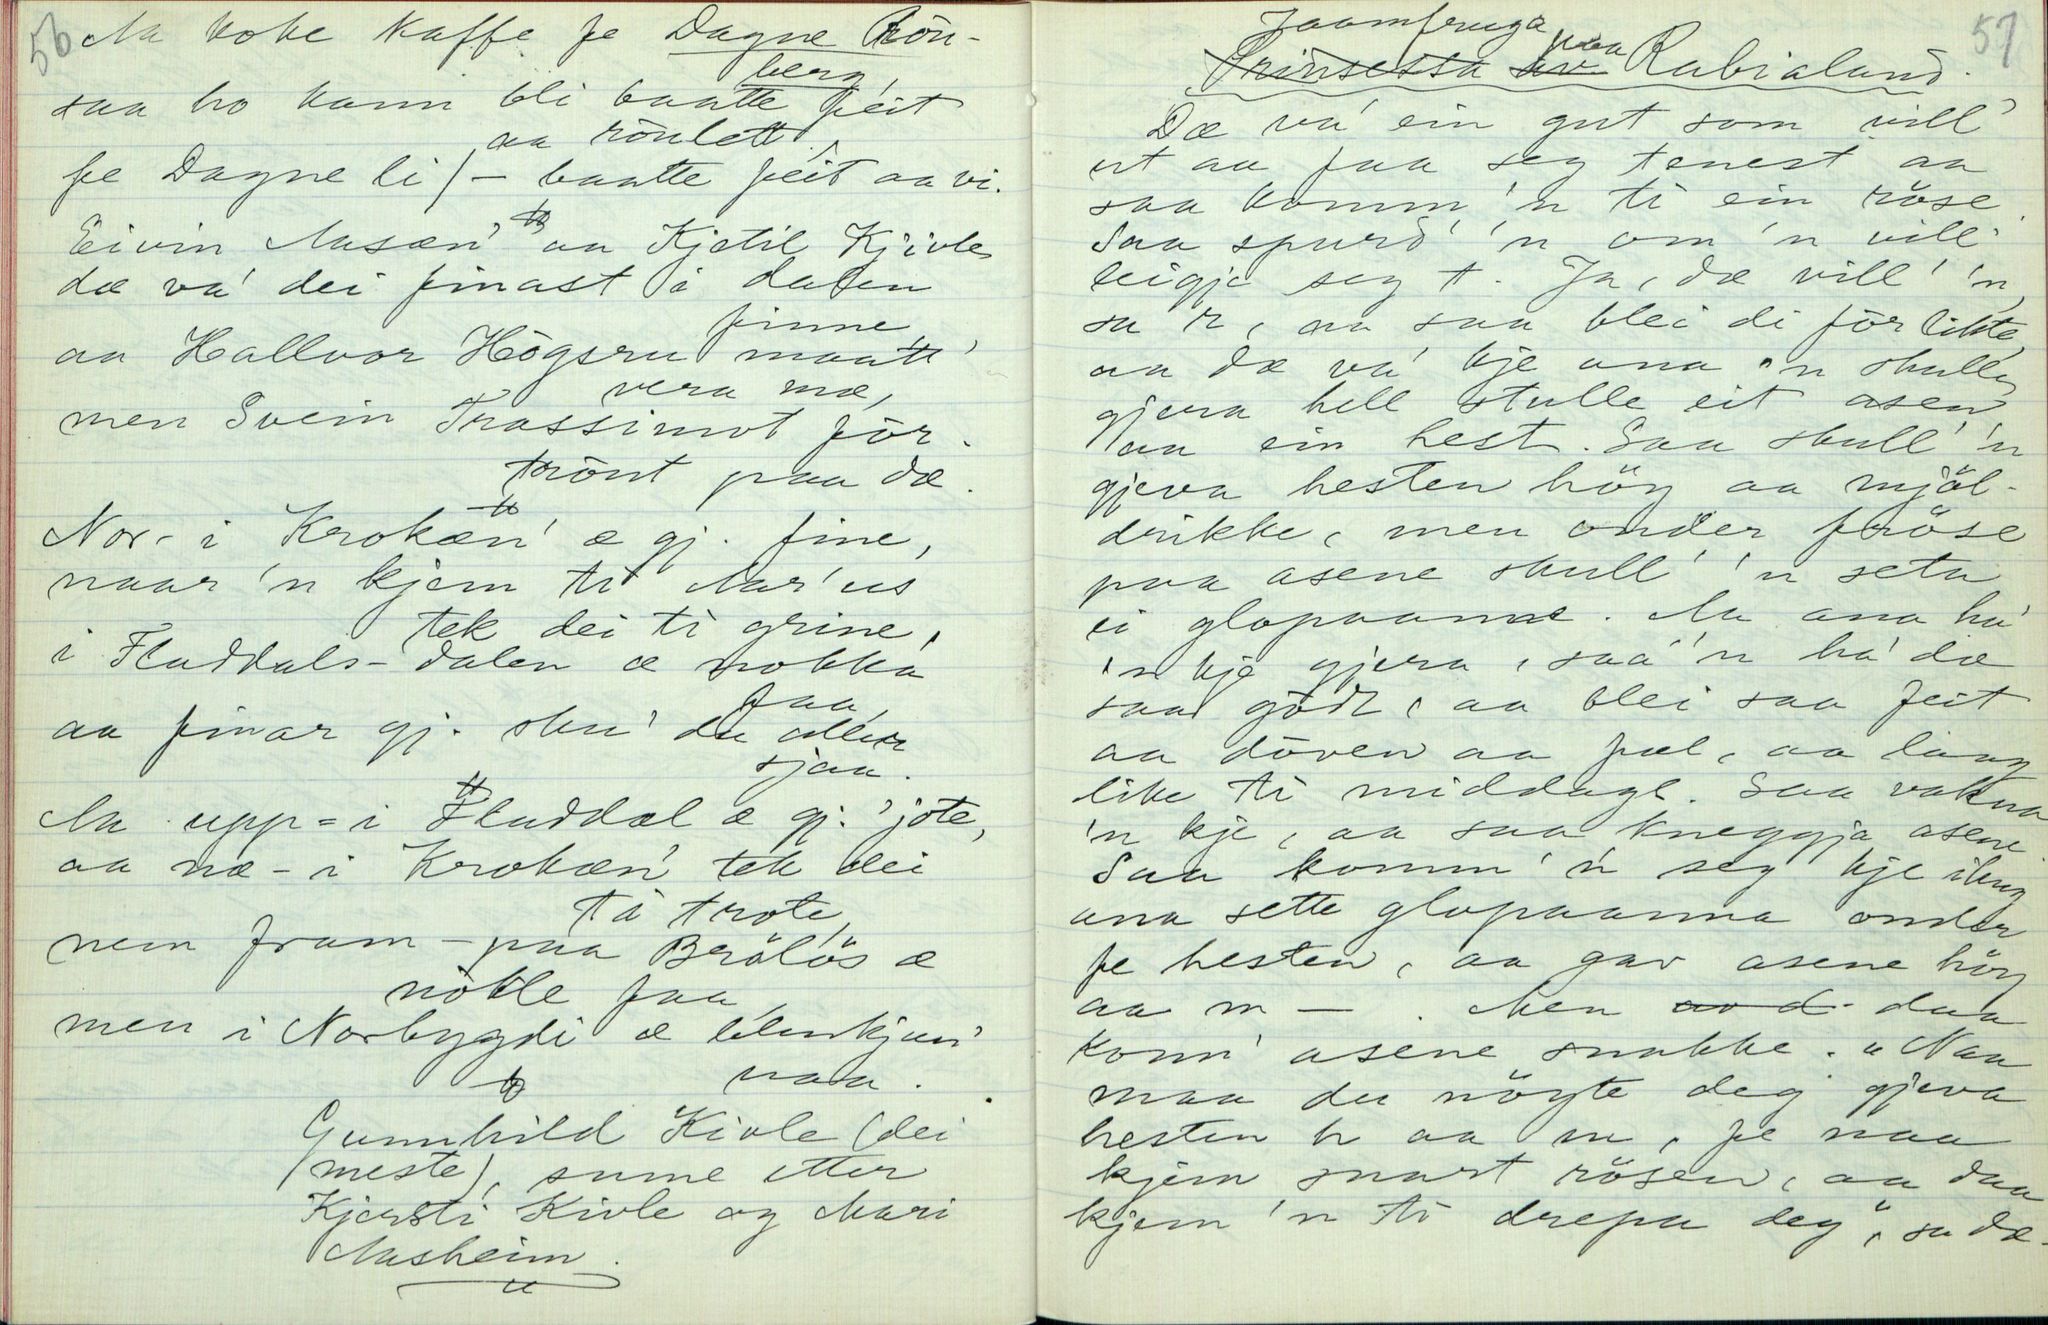 56
Aa koke kaffe fe Dagne Rön-
berg,
saa ho kann bli baatte feit
aa rönlett,
fe Dagne li) – baatte feit aa vi.
Eivin Aasæn' aa Kjetil Kivle
dæ va' dei finast i dalen
finne,
aa Hallvor Högsru maatt'
vera mæ,
men Svein Trassimot för-
trönt paa dæ.
Nor- i Krokæn' æ gj. fine,
naar 'n kjem ti Aar'us
tek dei ti grine,
i Fluddals-dalen æ nokka
faa,
aa finar gj. sku' du aller
sjaa.
Aa upp-i Fluddal æ gj. 'jote,
aa næ-i Krokæn' tek dei
ti trote,
men fram-paa Brölös æ
nökle faa,
men i Norbygdi æ
naa.
Gunnhild Kivle (dei
meste), sume etter
Kjersti Kivle og Mari
Aasheim.
57
Jaamfruga
Prinsessa av paa Rabialand.
Dæ va' ein gut som vill'
ut aa faa seg tenest aa
saa komm 'n ti ein röse.
Saa spurd' 'n om 'n vill'
leigje seg t. Ja, dæ vill' 'n,
sa 'n, aa saa blei di förlikte,
aa dæ va' kje ana 'n skulle
gjera hell stulle eit asen
aa ein hest. Saa skull' 'n
gjeva hesten höy aa mjöl-
drikke, men onder fröse
paa asene skull' 'n seta
ei glopaanne. Aa ana ha'
'n kje gjera, saa 'n ha' dæ
saa godt, aa blei saa feit
aa döven aa fæl, aa laag
like ti middags. Saa vakna
'n kje, aa saa kneggja asene.
Saa komm 'n seg kje ihug
ana sette glopaanna onder
fe hesten, aa gav asene höy
aa m –. Men av d. daa
konn' asene snakke. "Naa
maa du nöyte deg gjeva
hesten h aa m, fe naa
kjem snart rösen, aa daa
kjem 'n ti drepa deg", sa dæ.